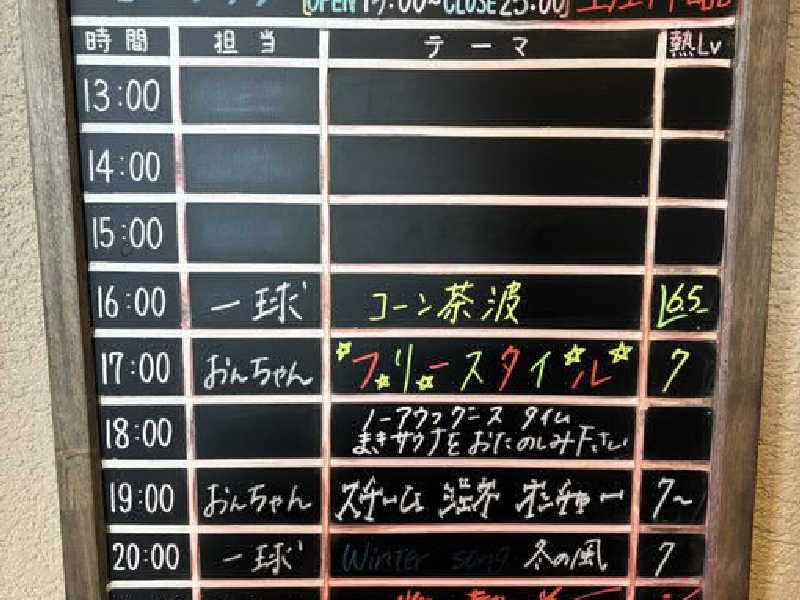 OPEN CLOSE 25:00
時間 担当 テーマ 熱Lv
13:00
14:00
15:00
16:00 一球 コーン茶波 6.5
17:00 おんちゃん フリースタイル 7
18:00 ノーアウフグースタイム
まきサウナをおたのしみ下さい
19:00 おんちゃん 7~
20:00 一球 Winter song 冬の風 7